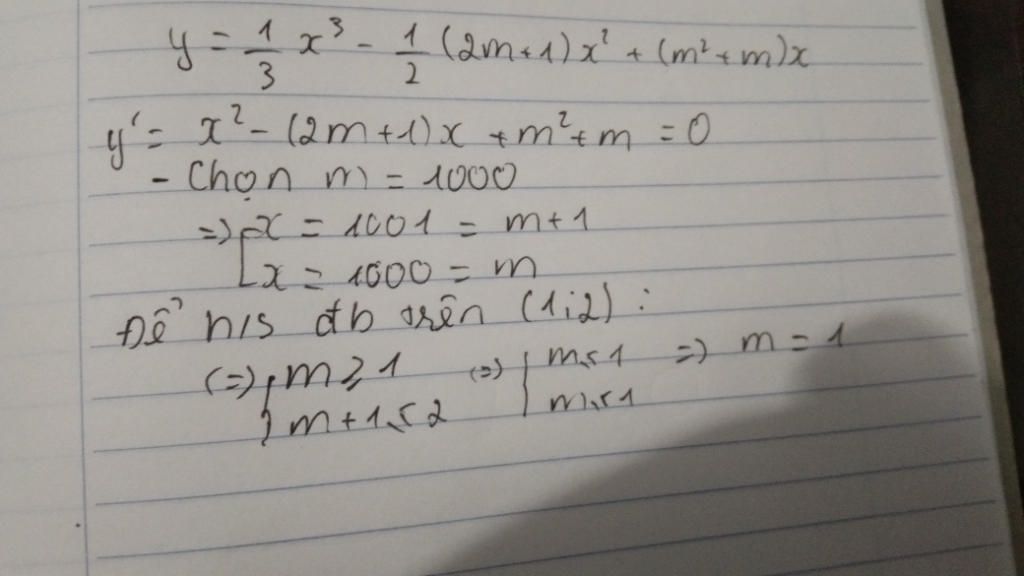 y = 1/3 x³ - 1/2 (2m+1)x² + (m²+m)x
y' = x² - (2m+1)x + m²+m = 0
- Chọn m = 1000
=> [ x = 1001 = m+1
x = 1000 = m
Để h/s đb trên (1;2) :
(=> { m ⩾ 1 (=> { m ⩽ 1 => m = 1
m+1 ⩽ 2 m ⩽ 1